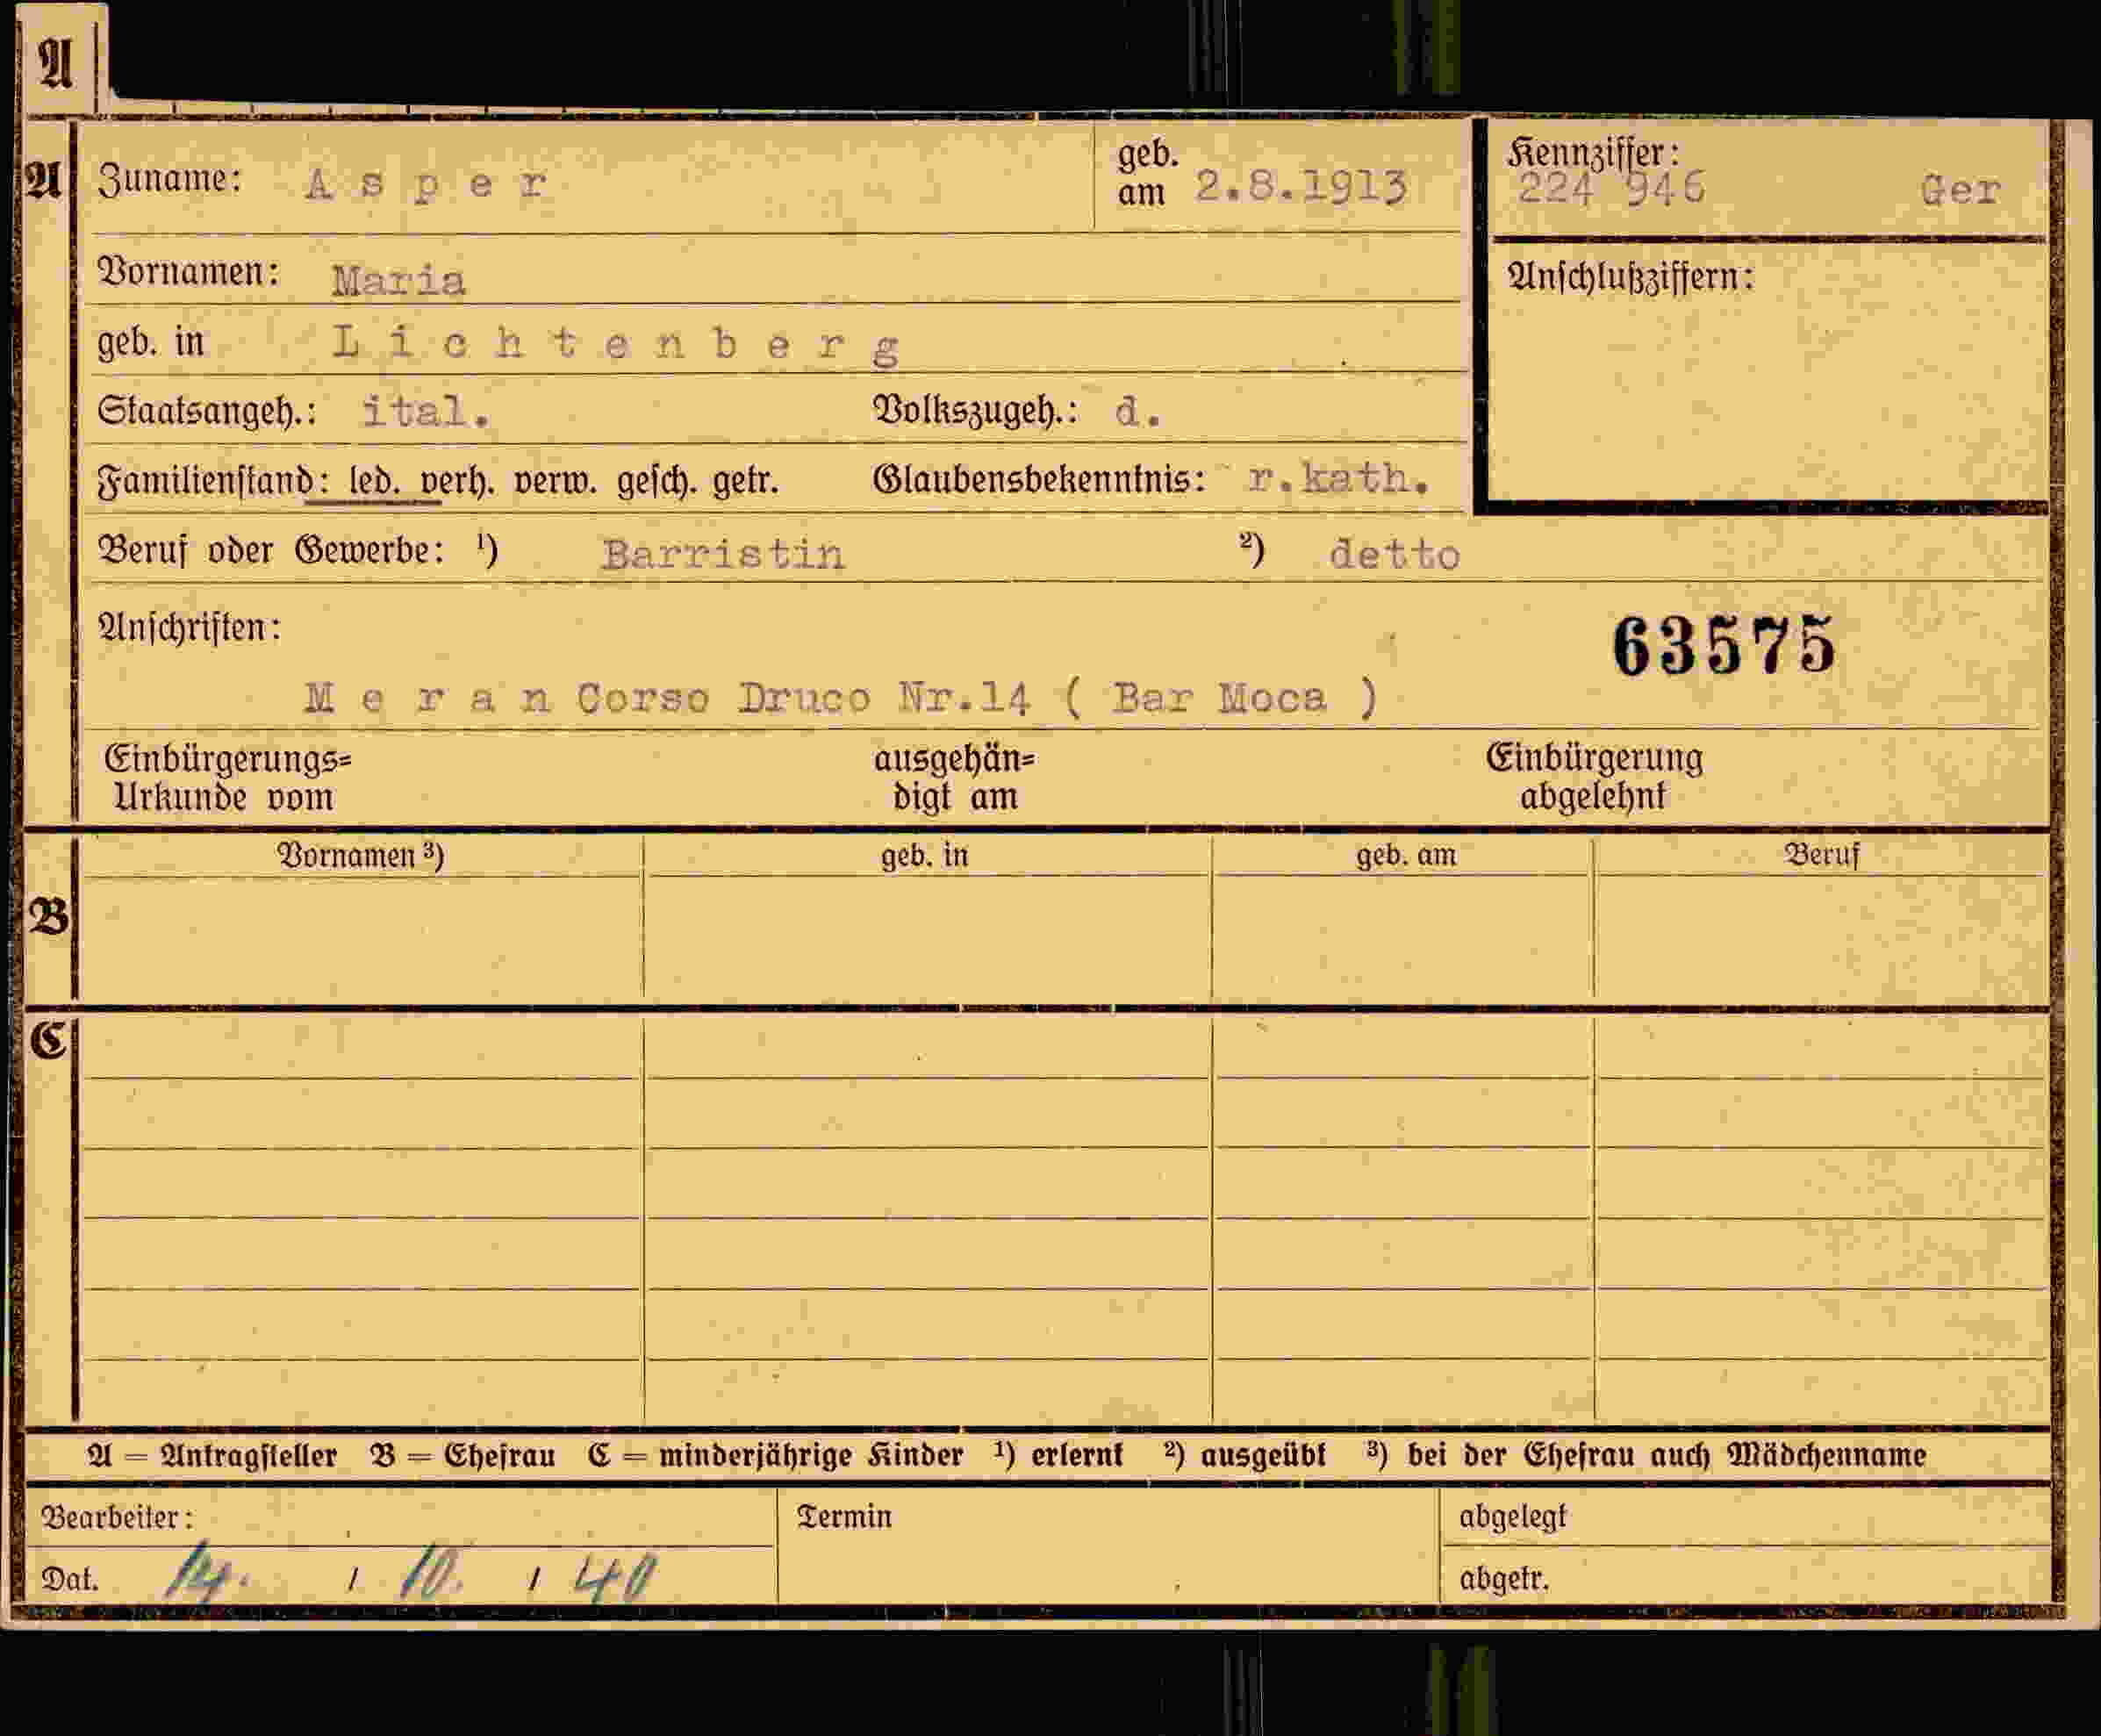 A
A Zuname: Asper geb. am 2.8.1913 Kennziffer: 224 946 Ger
Vornamen: Maria Anschlußziffern:
geb. in Lichtenberg
Staatsangeh.: ital. Volkszugeh.: d.
Familienstand: led. verh. verw. gesch. getr. Glaubensbekenntnis: r.kath.
Beruf oder Gewerbe: ¹) Barristin ²) detto
Anschriften: 63575
Meran Corso Druco Nr.14 ( Bar Moca )
Einbürgerungs= ausgehän= Einbürgerung
Urkunde vom digt am abgelehnt
Vornamen ³) geb. in geb. am Beruf
B
C
A = Antragsteller B = Ehefrau C = minderjährige Kinder ¹) erlernt ²) ausgeübt ³) bei der Ehefrau auch Mädchenname
Bearbeiter: Termin abgelegt
Dat. 14. / 10. / 40 abgetr.